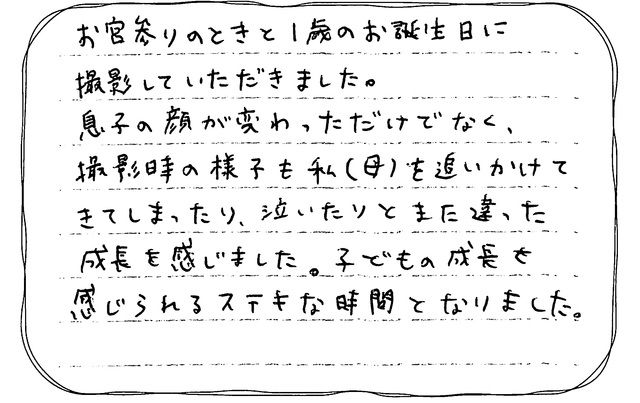 お宮参りのときと1歳のお誕生日に
撮影していただきました。
息子の顔が変わっただけでなく、
撮影時の様子も私(母)を追いかけて
きてしまったり、泣いたりとまた違った
成長を感じました。子どもの成長を
感じられるステキな時間となりました。